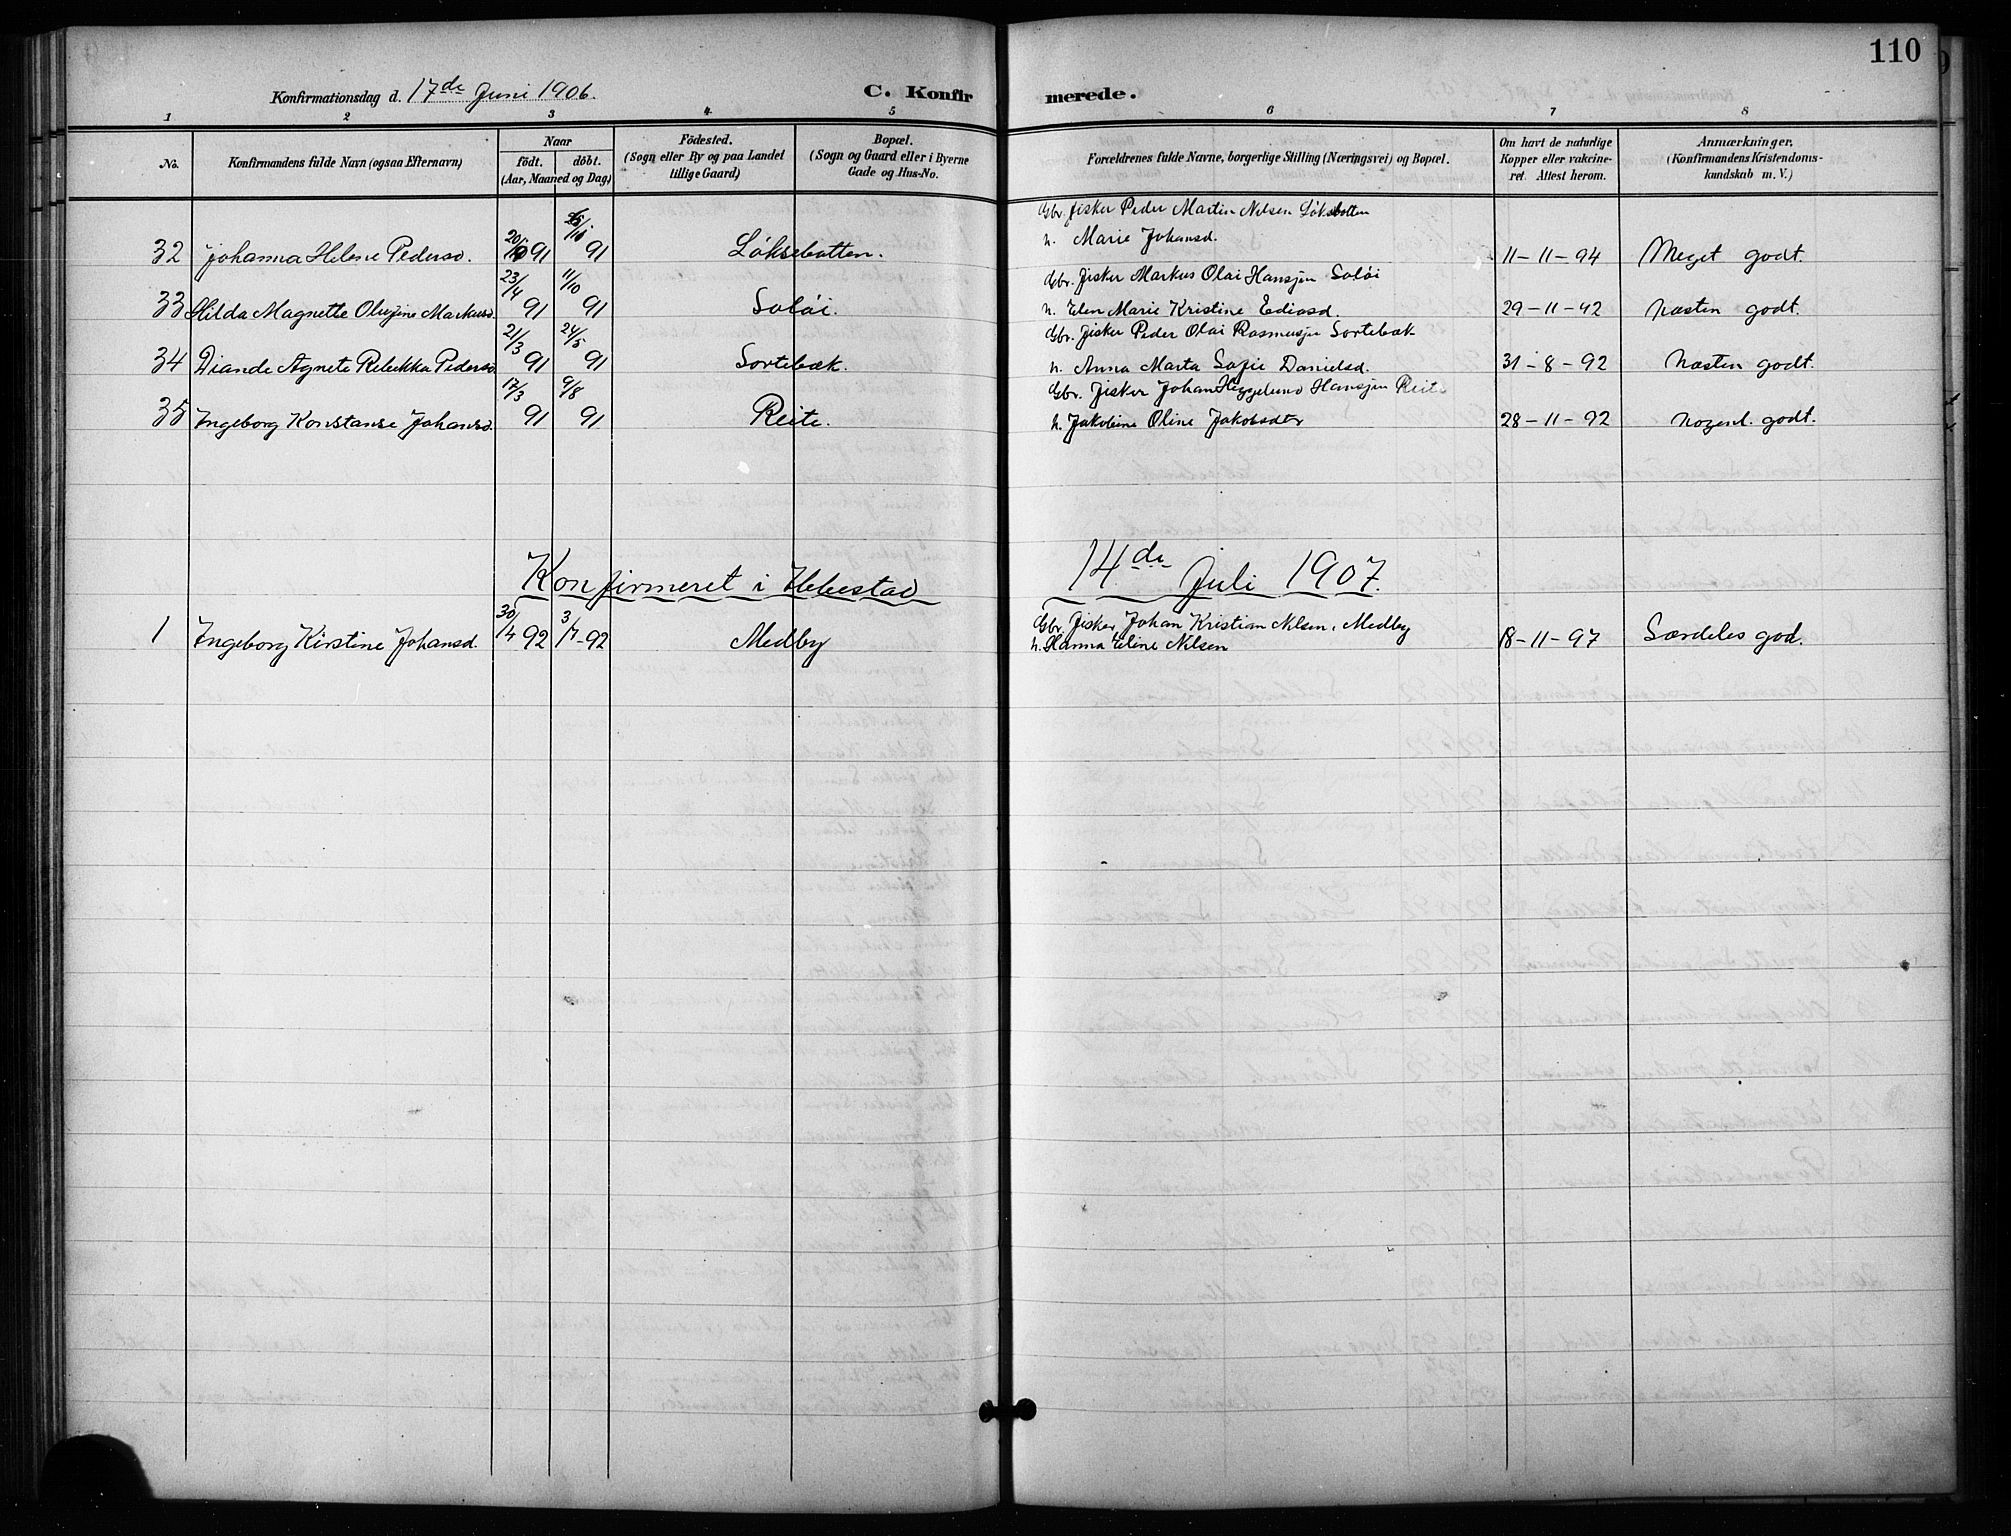 110
Konfirmationsdag d. 17de Juni 1906.
C. Konfirmerede.
1 2 3 4 5 6 7 8
No.
Konfirmandens fulde Navn (ogsaa Efternavn)
Naar
födt. döbt.
(Aar, Maaned og Dag)
Födested.
(Sogn eller By og paa Landet
tillige Gaard)
Bopæl.
(Sogn og Gaard eller i Byerne
Gade og Hus-No.
Forældrenes fulde Navne, borgerlige Stilling (Næringsvei) og Bopæl.
Om havt de naturlige
Kopper eller vakcine-
ret. Attest herom.
Anmærkninger,
(Konfirmandens Kristendoms-
kundskab m. V.)
Gbr. fisker Peder Martin Nilsen Løksebotten
32 Johanna Helene Pedersd. 20/10 91 /10 91 Løksebotten. h. Marie Johansd. 11-11-94 Meget godt.
Gbr. fisker Markus Olai Hansjen Soløi
33 Hilda Magnette Olufine Markusd. 23/4 91 11/10 91 Soløi. h. Elen Marie Kristine Ediasd. 29-11-92 Næsten godt.
Gbr. fisker Peder Olai Rasmusjen Sortebæk
34 Diande Agnete Rebekka Pedersd. 21/3 91 24/5 91 Sortebæk. h. Anna Marta Sofie Danielsd. 31-8-92 Næsten godt.
Gbr. fisker Johan Heggelund Hansjen Reite
35 Ingeborg Konstanse Johansd. 17/3 91 9/8 91 Reite. h. Jakobine Oline Jakobsdtr 28-11-92 Nogenl. godt.
Konfirmeret i Ibbestad 14de Juli 1907.
Gbr. fisker Johan Kristian Nilsen, Medby
1 Ingeborg Kirstine Johansd. 30/4 92 3/7-92 Medby h. Hanna Eline Nilsen 18-11-97 Særdeles god.